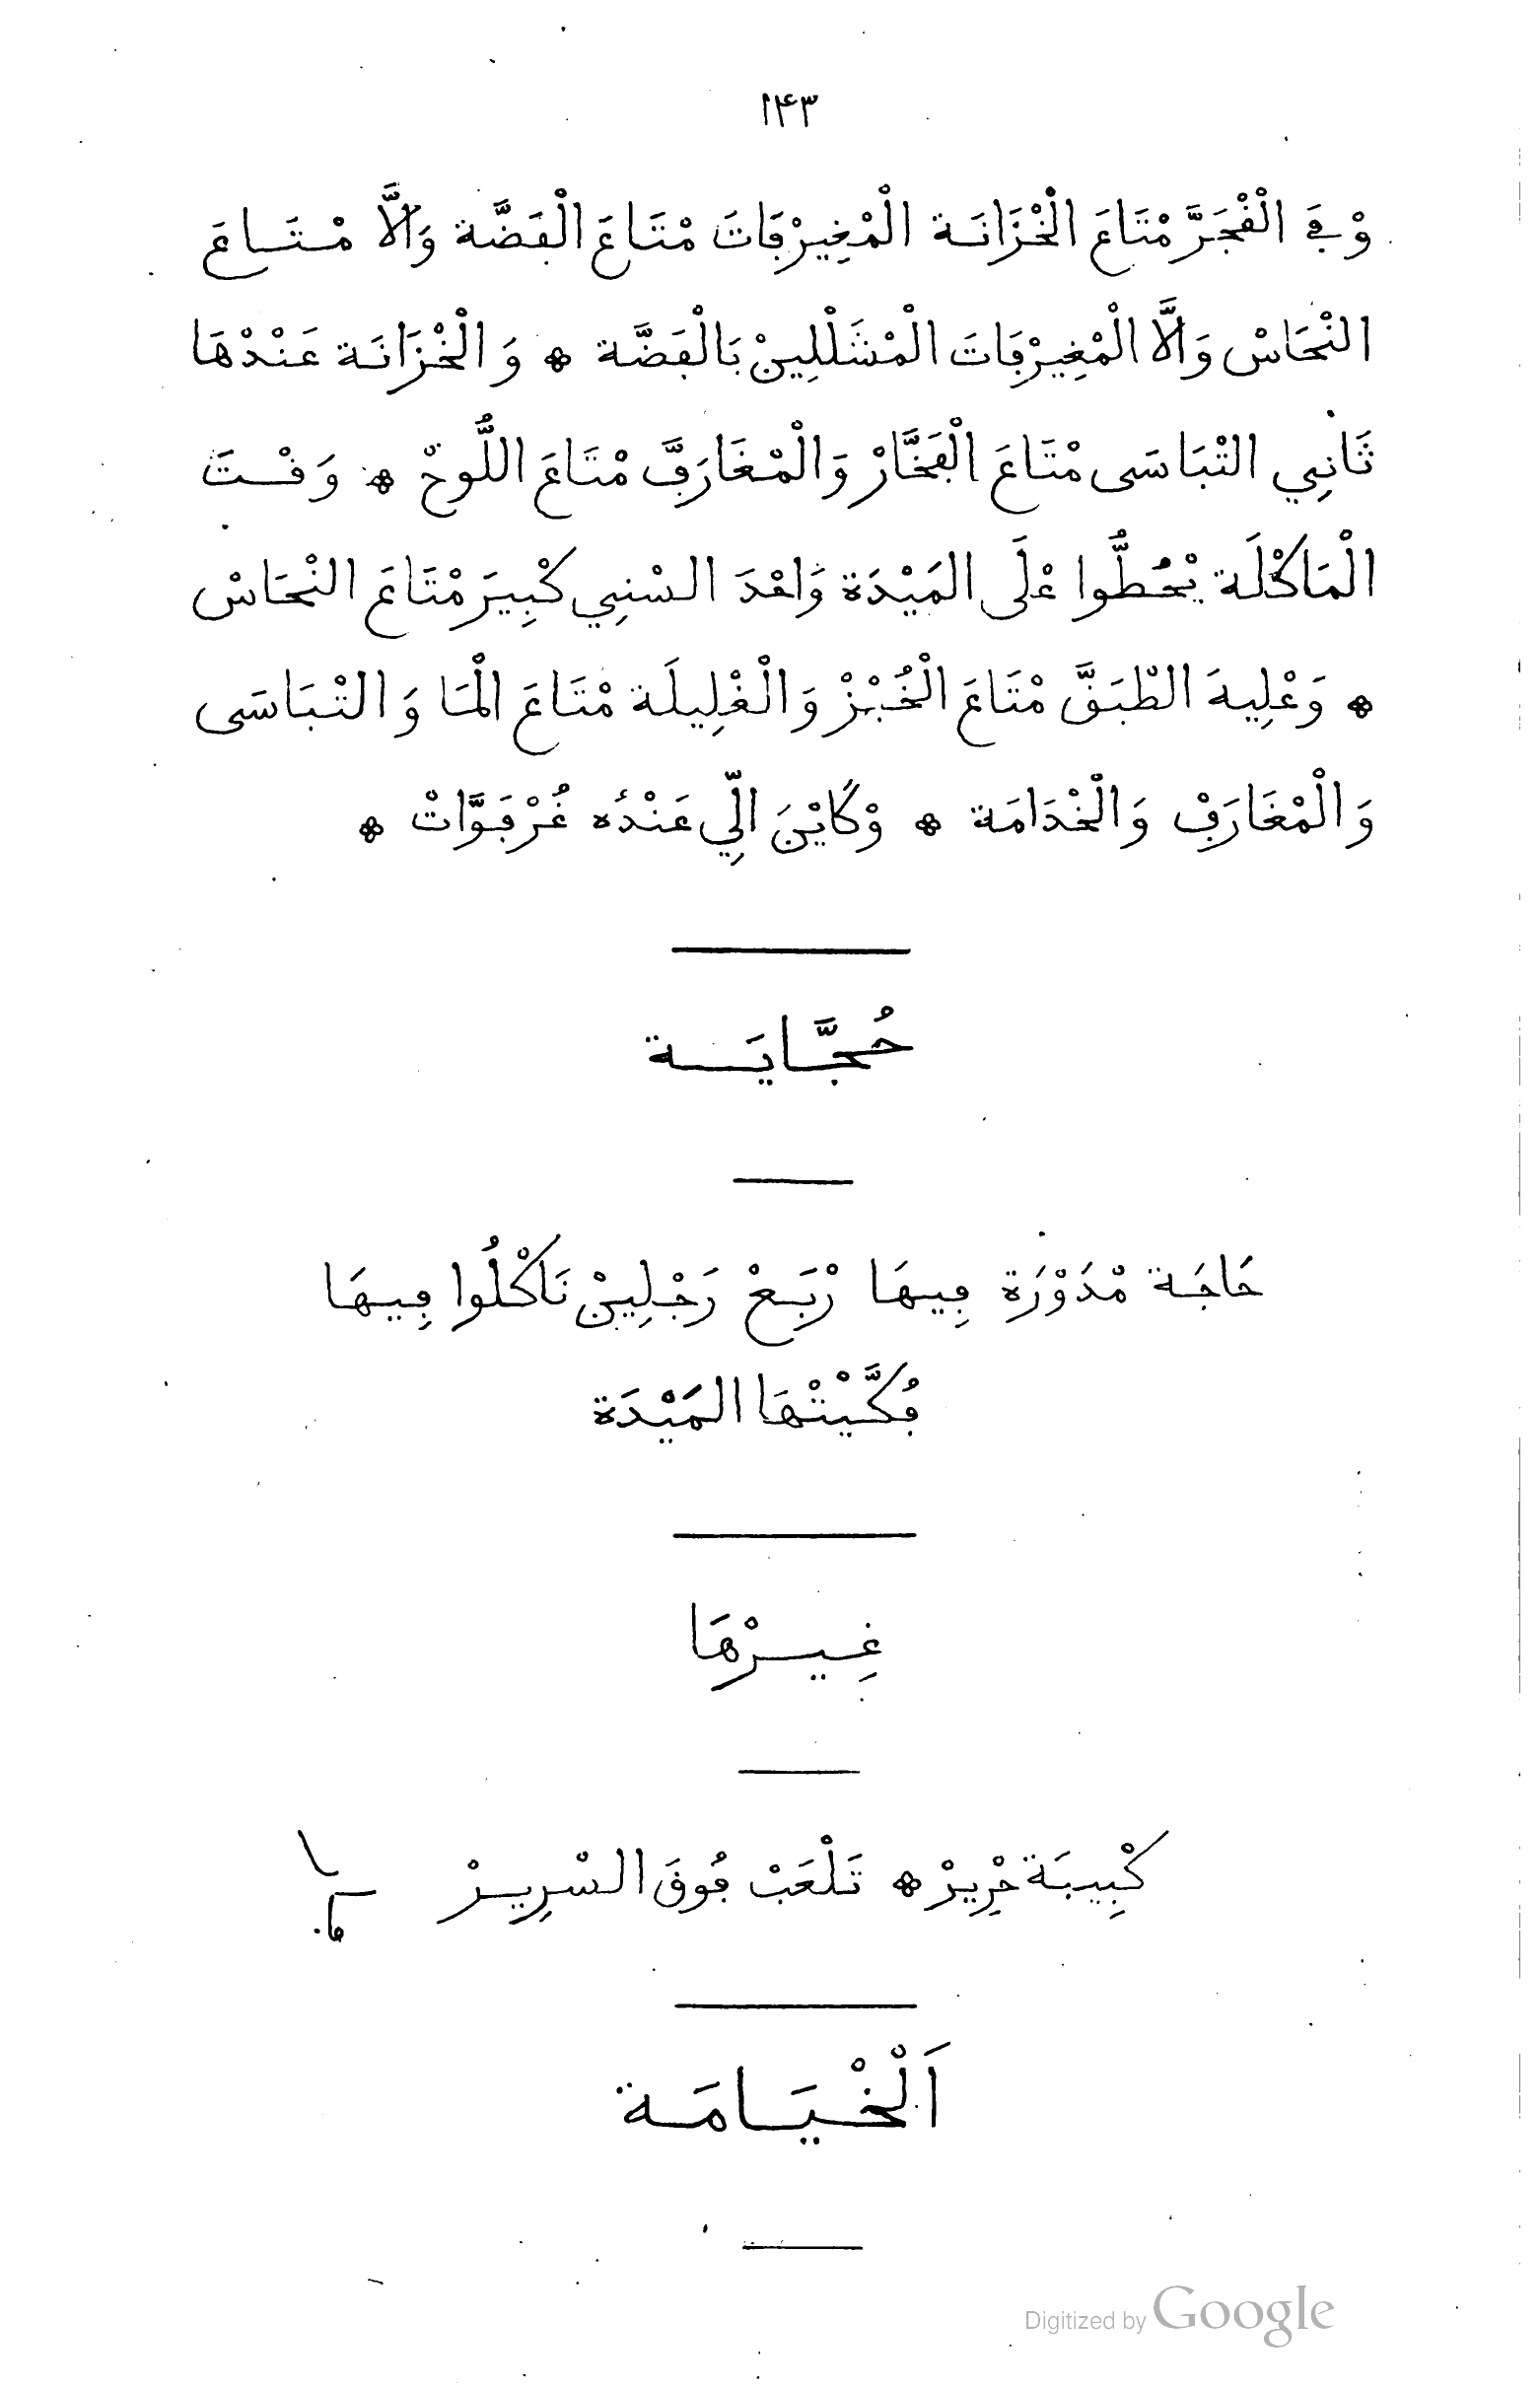 ١٤٣
وْفِي الْفْجَرَّ مْتَاعَ الْخْزَانَة الْمْغِيرْفَاتَ مْتَاعَ الْفَضَّة وَلَّا مْتَاعَ
النْحَاسْ وَلَّا الْمْغِيرْفَاتَ الْمْشَلْلِينْ بَالْفَضَّة ❊ وَالْخْزَانَة عَنْدْهَا
ثَانِي التْبَاسَى مْتَاعَ الْفَخَّارْ وَالْمْغَارَفَ مْتَاعَ اللُّوحْ ❊ وَفْتَ
الْمَاكْلَة يْحُطُّوا عْلَى المَيْدَة وَاحْدَ السْنِي كْبِيرَ مْتَاعَ النْحَاسْ
❊ وَعْلِيهَ الطْبَقَ مْتَاعَ الْخُبْزْ وَالْغْلِيلَة مْتَاعَ الْمَا وَالتْبَاسَى
وَالْمْغَارَفْ وَالْخْدَامَة ❊ وْكَايْنَ الِّي عَنْدُه غُرْفَوَّاتْ ❊
حُجَّايَة
حَاجَة مْدَوْرَة فِيهَا رْبَعْ رَجْلِينْ نَاكْلُوا فِيهَا
فُكَّيْتْهَا المَيْدَة
غِيرْهَا
كْبِيبَة حْرِيرْ ❊ تَلْعَبْ فُوقَ السْرِيرْ
اَلْخْيَامَة
Digitized by Google